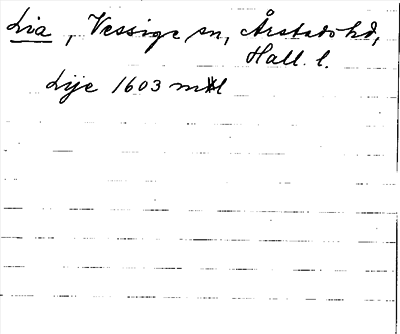 Lia, Vessige sn, Årstads hd,
Hall. l.
Lije 1603 mtl